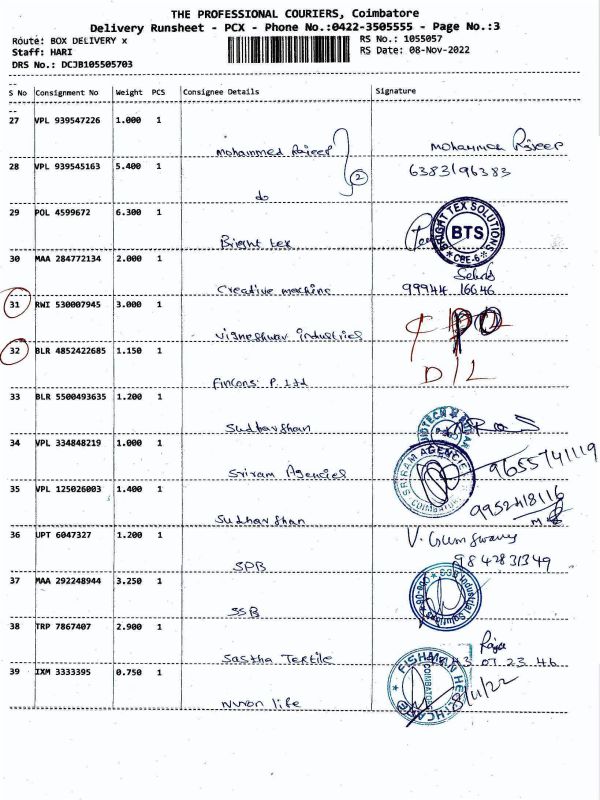 THE PROFESSIONAL COURIERS, Coimbatore
Delivery Runsheet - PCX - Phone No.:0422-3505555 - Page No.:3
Route: BOX DELIVERY x
RS No.: 1055057
Staff: HARI
RS Date: 08-Nov-2022
DRS No.: DCJB105505703
S No Consignment No Weight PCS Consignee Details Signature
27 VPL 939547226 1.000 1
Mohammed Rajeep Mohammed Rajeep
28 VPL 939545163 5.400 1 2 6383196383
do
29 POL 4599672 6.300 1
Bright tex
BRIGHT TEX SOLUTIONS BTS CBE-6
30 MAA 284772134 2.000 1
Creative machine 99944 16646
31 RWI 530007945 3.000 1
Vigneshwar industries
32 BLR 4852422685 1.150 1
Fincons: P. Ltd D/L
33 BLR 5500493635 1.200 1
Sudharshan
34 VPL 334848219 1.000 1
Sriram Agencies 9655741119
SRIRAM AGENCIE COIMBATORE
35 VPL 125026003 1.400 1
Sudharshan 9952418116
36 UPT 6047327 1.200 1
SPB 9842831349
37 MAA 292248944 3.250 1
SSB
Industrial Solutions
38 TRP 7867407 2.900 1
Sastha Textile 43 07 23 46
39 IXM 3333395 0.750 1
Nuron life 8/11/22
FISHMAN HEALTHCARE COIMBATORE